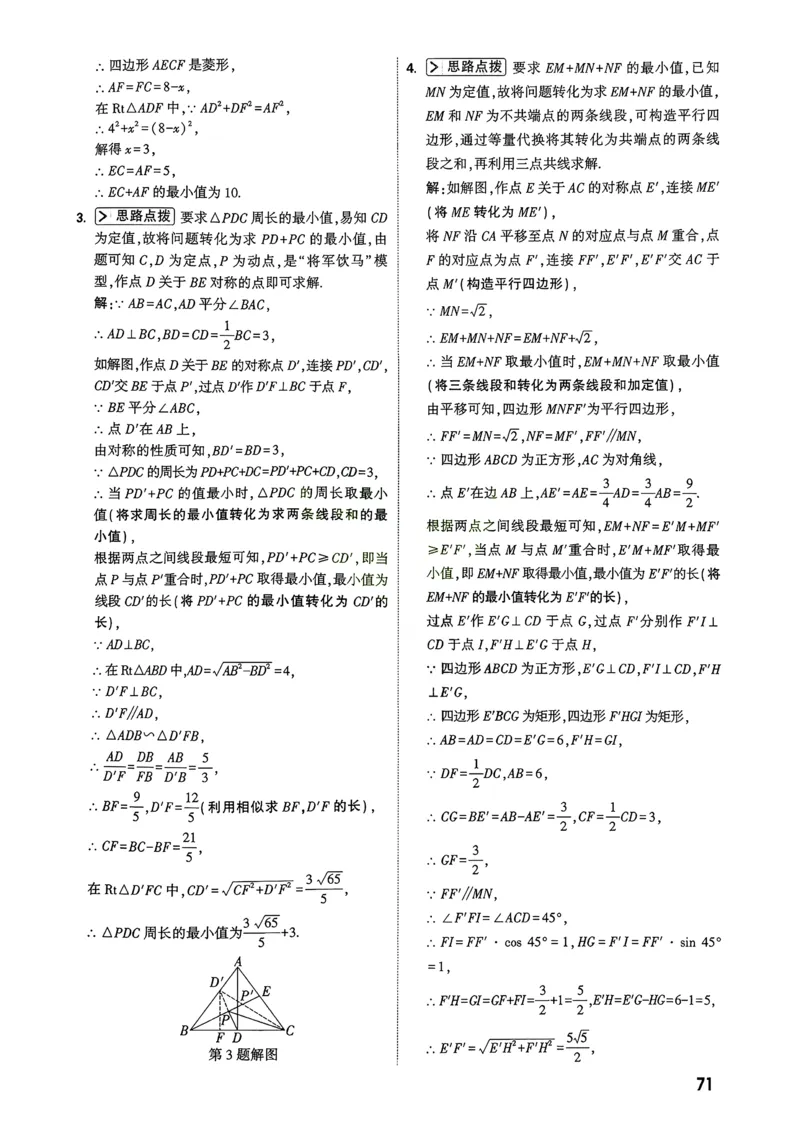 ∴ 四边形 AECF 是菱形，
∴ AF=FC=8-x，
在 Rt△ADF 中，∵ AD²+DF²=AF²，
∴ 4²+x²=(8-x)²，
解得 x=3，
∴ EC=AF=5，
∴ EC+AF 的最小值为 10.
3. > 思路点拨 要求△PDC 周长的最小值，易知 CD
为定值，故将问题转化为求 PD+PC 的最小值，由
题可知 C，D 为定点，P 为动点，是“将军饮马”模
型，作点 D 关于 BE 对称的点即可求解.
解：∵ AB=AC，AD 平分∠BAC，
∴ AD⊥BC，BD=CD=1/2BC=3，
如解图，作点 D 关于 BE 的对称点 D′，连接 PD′，CD′，
CD′交 BE 于点 P′，过点 D′作 D′F⊥BC 于点 F，
∵ BE 平分∠ABC，
∴ 点 D′在 AB 上，
由对称的性质可知，BD′=BD=3，
∵ △PDC 的周长为 PD+PC+DC=PD′+PC+CD，CD=3，
∴ 当 PD′+PC 的值最小时，△PDC 的周长取最小
值(将求周长的最小值转化为求两条线段和的最
小值)，
根据两点之间线段最短可知，PD′+PC≥CD′，即当
点 P 与点 P′重合时，PD′+PC 取得最小值，最小值为
线段 CD′的长(将 PD′+PC 的最小值转化为 CD′的
长)，
∵ AD⊥BC，
∴ 在 Rt△ABD 中，AD=√(AB²-BD²)=4，
∵ D′F⊥BC，
∴ D′F∥AD，
∴ △ADB∽△D′FB，
∴ AD/D′F=DB/FB=AB/D′B=5/3，
∴ BF=9/5，D′F=12/5(利用相似求 BF，D′F 的长)，
∴ CF=BC-BF=21/5，
在 Rt△D′FC 中，CD′=√(CF²+D′F²)=3√65/5，
∴ △PDC 周长的最小值为3√65/5+3.
A
D′
P′ E
P
B
F D
C
第 3 题解图
4. > 思路点拨 要求 EM+MN+NF 的最小值，已知
MN 为定值，故将问题转化为求 EM+NF 的最小值，
EM 和 NF 为不共端点的两条线段，可构造平行四
边形，通过等量代换将其转化为共端点的两条线
段之和，再利用三点共线求解.
解：如解图，作点 E 关于 AC 的对称点 E′，连接 ME′
(将 ME 转化为 ME′)，
将 NF 沿 CA 平移至点 N 的对应点与点 M 重合，点
F 的对应点为点 F′，连接 FF′，E′F′，E′F′交 AC 于
点 M′(构造平行四边形)，
∵ MN=√2，
∴ EM+MN+NF=EM+NF+√2，
∴ 当 EM+NF 取最小值时，EM+MN+NF 取最小值
(将三条线段和转化为两条线段和加定值)，
由平移可知，四边形 MNFF′为平行四边形，
∴ FF′=MN=√2，NF=MF′，FF′∥MN，
∵ 四边形 ABCD 为正方形，AC 为对角线，
∴ 点 E′在边 AB 上，AE′=AE=3/4AD=3/4AB=9/2.
根据两点之间线段最短可知，EM+NF=E′M+MF′
≥E′F′，当点 M 与点 M′重合时，E′M+MF′取得最
小值，即 EM+NF 取得最小值，最小值为 E′F′的长(将
EM+NF 的最小值转化为 E′F′的长)，
过点 E′作 E′G⊥CD 于点 G，过点 F′分别作 F′I⊥
CD 于点 I，F′H⊥E′G 于点 H，
∵ 四边形 ABCD 为正方形，E′G⊥CD，F′I⊥CD，F′H
⊥E′G，
∴ 四边形 E′BCG 为矩形，四边形 F′HGI 为矩形，
∴ AB=AD=CD=E′G=6，F′H=GI，
∵ DF=1/2DC，AB=6，
∴ CG=BE′=AB-AE′=3/2，CF=1/2CD=3，
∴ GF=3/2，
∵ FF′∥MN，
∴ ∠F′FI=∠ACD=45°，
∴ FI=FF′·cos 45°=1，HG=F′I=FF′·sin 45°
=1，
∴ F′H=GI=GF+FI=3/2+1=5/2，E′H=E′G-HG=6-1=5，
∴ E′F′=√(E′H²+F′H²)=5√5/2，
71